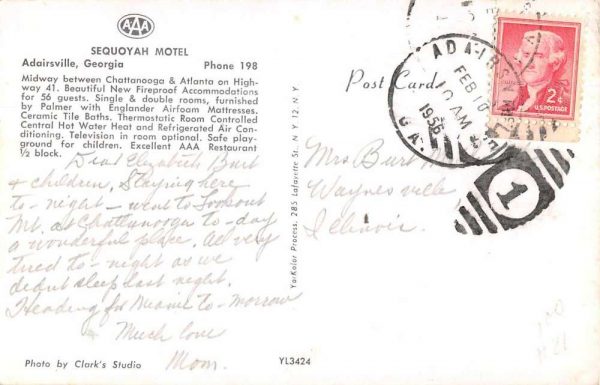 AAA
SEQUOYAH MOTEL
Adairsville, Georgia Phone 198
Midway between Chattanooga & Atlanta on High-
way 41. Beautiful New Fireproof Accommodations
for 56 guests. Single & double rooms, furnished
by Palmer with Englander Airfoam Mattresses.
Ceramic Tile Baths. Thermostatic Room Controlled
Central Hot Water Heat and Refrigerated Air Con-
ditioning. Television in room optional. Safe play-
ground for children. Excellent AAA Restaurant
½ block.
Dear Elizabeth Burt
& children, Staying here
to-night - went to Lookout
Mt. at Chattanooga to-day
a wonderful place. All very
tired to-night as we
didn't sleep last night.
Heading for Miami to-morrow
Much love
Mom.
Photo by Clark's Studio
YL3424
Ya-Kolor Process, 285 Lafayette St., N.Y. 12, N.Y.
Post Card
ADAIRSVILLE
FEB 10
10 AM
1956
GA.
2¢
U.S. POSTAGE
1
Mrs Burt
Waynesville,
Illinois.